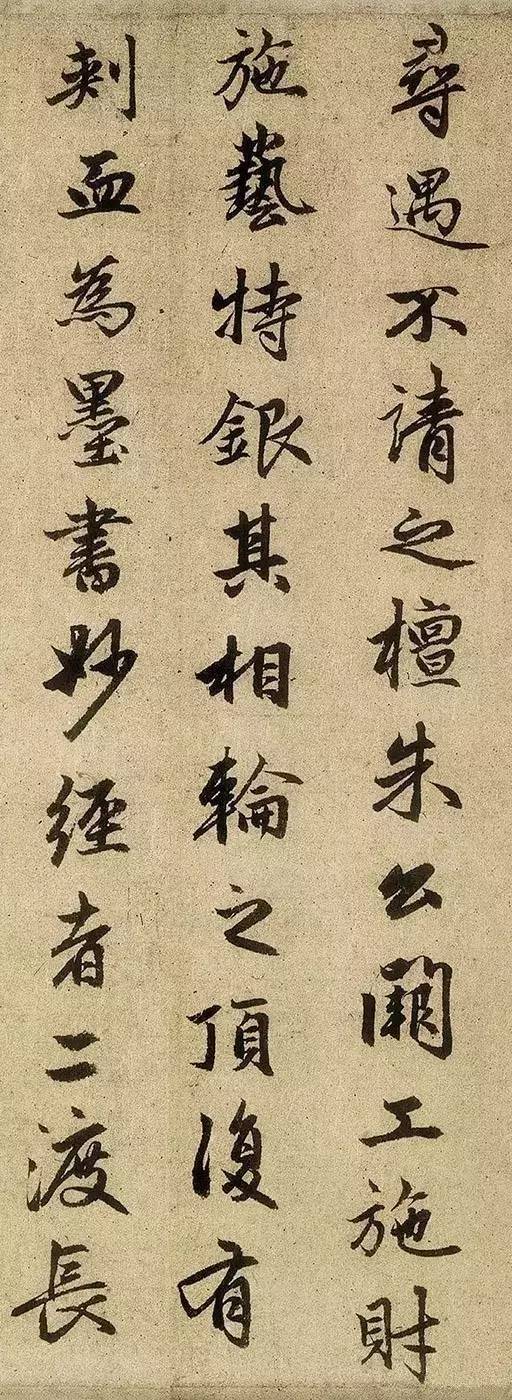 尋遇不請之檀朱公關工施財
施藝特銀其相輪之頂復有
刺血為墨書妙經者二渡長